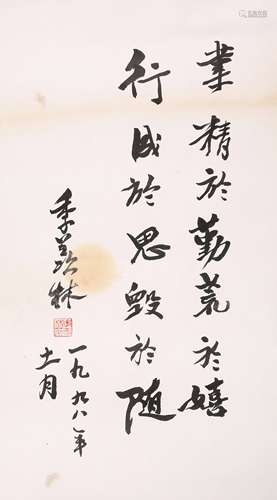 業精於勤荒於嬉
行成於思毀於随
季羡林
一九九八年
十一月